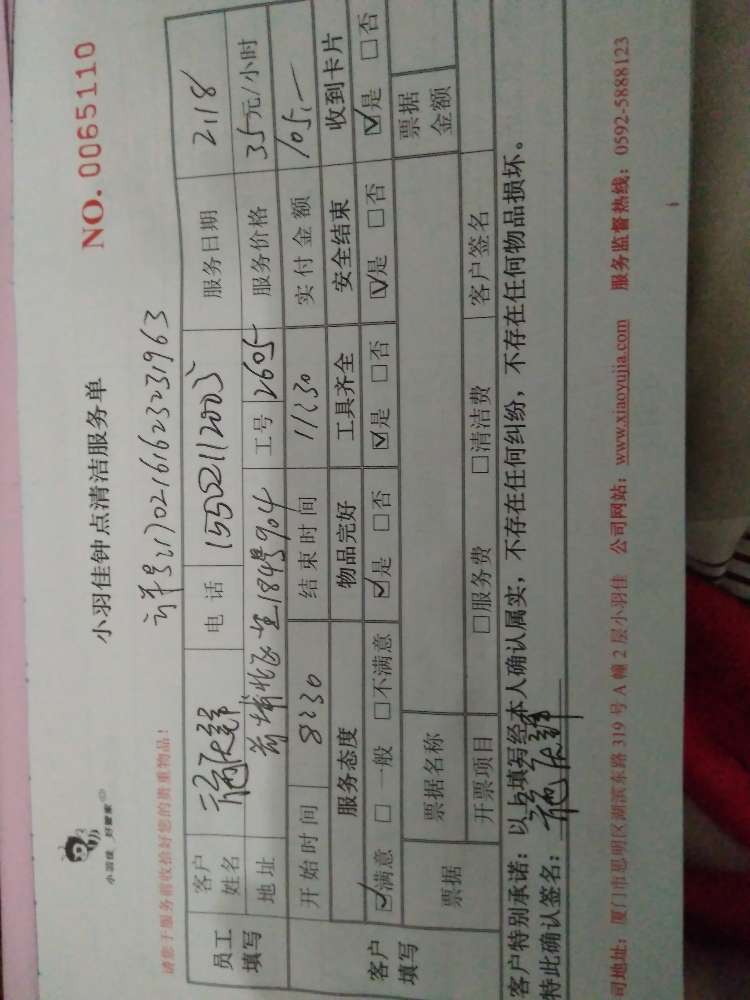 小羽佳 好管家
NO. 0065110
小羽佳钟点清洁服务单
请您于服务前收拾好您的贵重物品！
单号21702161623231963
员工填写
客户姓名
电话 15502112005
服务日期 2.18
地址
184号904
工号 2605
服务价格 35元/小时
开始时间 8:30 结束时间 11:30 实付金额 105.—
客户填写
服务态度 物品完好 工具齐全 安全结束 收到卡片
☑满意 □一般 □不满意 ☑是 □否 ☑是 □否 ☑是 □否 ☑是 □否
票据 票据名称 票据金额
开票项目 □服务费 □清洁费 客户签名
客户特别承诺：以上填写经本人确认属实，不存在任何纠纷，不存在任何物品损坏。
特此确认签名：
司地址：厦门市思明区湖滨东路 319 号 A 幢 2 层小羽佳 公司网站：www.xiaoyujia.com 服务监督热线：0592-5888123